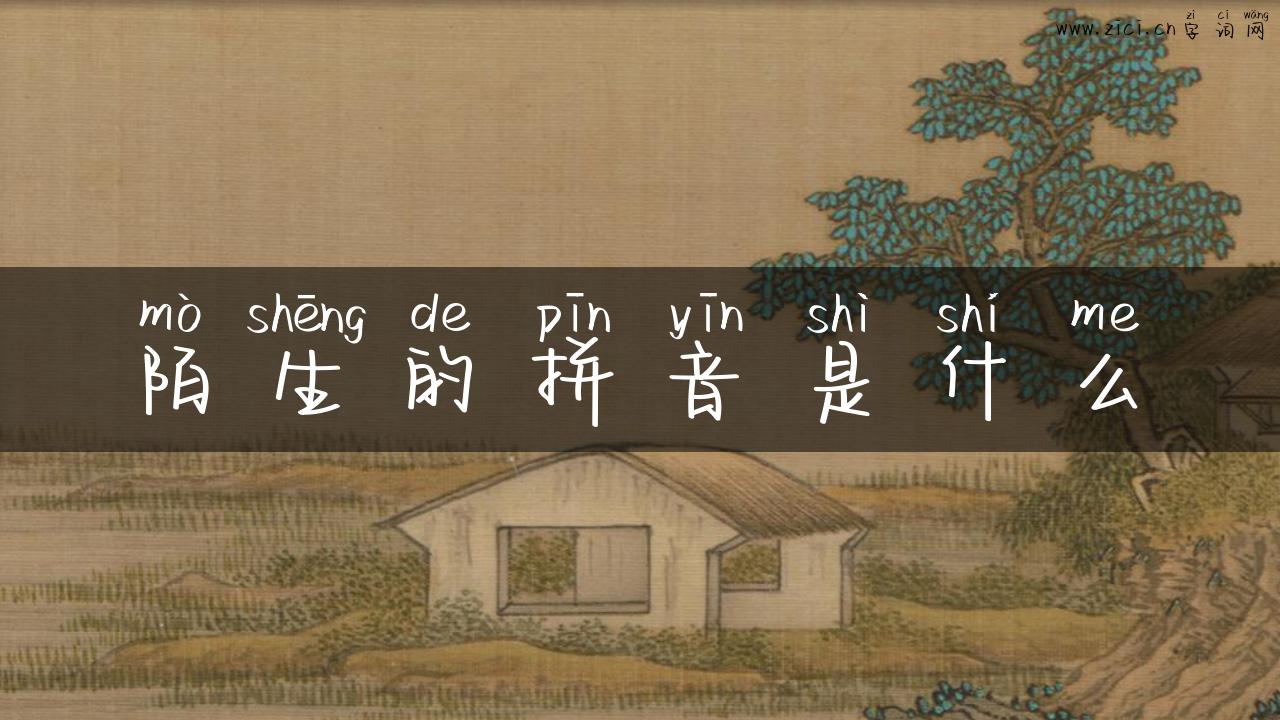 zì cí wǎng
www.zici.cn 字词网
mò shēng de pīn yīn shì shí me
陌生的拼音是什么